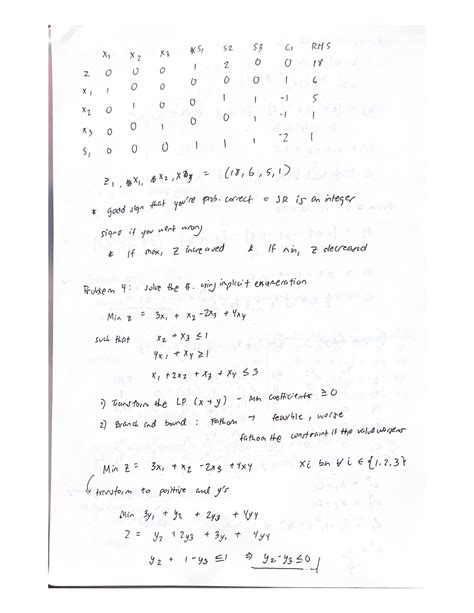 x1 x2 x3 S1 S2 S3 C1 RHS
Z 0 0 0 1 2 0 0 18
x1 1 0 0 0 0 0 1 6
x2 0 1 0 0 1 1 -1 5
x3 0 0 1 0 0 1 -1 1
S1 0 0 0 1 1 1 -2 1
Z1, x1, x2, x3 = (18, 6, 5, 1)
* good sign that you're prob. correct = SR is an integer
signs if you went wrong
* If max, Z increased * If min, Z decreased
Problem 4: solve the using implicit enumeration
Min z = 3x1 + x2 - 2x3 + 4x4
such that x2 + x3 ≤ 1
4x1 + x4 ≥ 1
x1 + 2x2 + x3 + x4 ≤ 3
1) Transform the LP (x → y) - Mn coefficients ≥ 0
2) Branch and bound: Fathom → feasible, worse
fathom the constraint if the value worsens
Min Z = 3x1 + x2 - 2x3 + 4x4 xi bn ∀ i ∈ {1,2,3}
transform to positive and y's
Min 3y1 + y2 + 2y3 + 4y4
Z = y2 + 2y3 + 3y1 + 4y4
y2 + 1 - y3 ≤ 1 ⇒ y2 - y3 ≤ 0